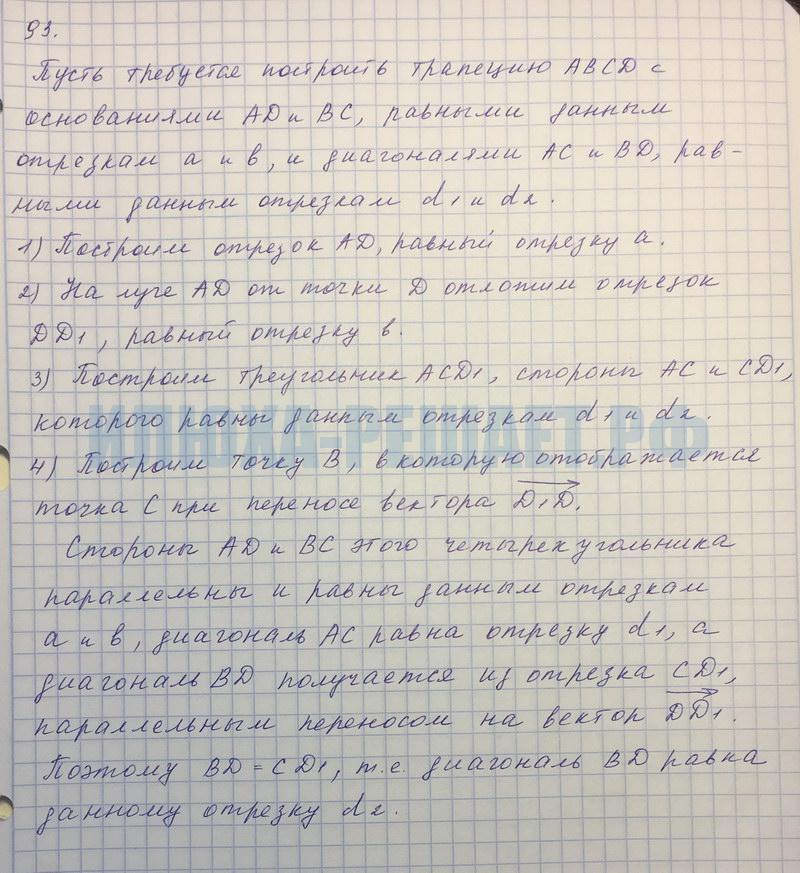 93.
Пусть требуется построить трапецию ABCD с
основаниями AD и BC, равными данным
отрезкам a и b, и диагоналями AC и BD, рав-
ными данным отрезкам d1 и d2.
1) Построим отрезок AD, равный отрезку a.
2) На луче AD от точки D отложим отрезок
DD1, равный отрезку b.
3) Построим треугольник ACD1, стороны AC и CD1,
которого равны данным отрезкам d1 и d2.
КЛЮХА-РЕШАЕТ.РФ
4) Построим точку B, в которую отображается
точка C при переносе вектора D1D.
Стороны AD и BC этого четырехугольника
параллельны и равны данным отрезкам
a и b, диагональ AC равна отрезку d1, а
диагональ BD получается из отрезка CD1,
параллельным переносом на вектор DD1.
Поэтому BD = CD1, т.е. диагональ BD равна
данному отрезку d2.